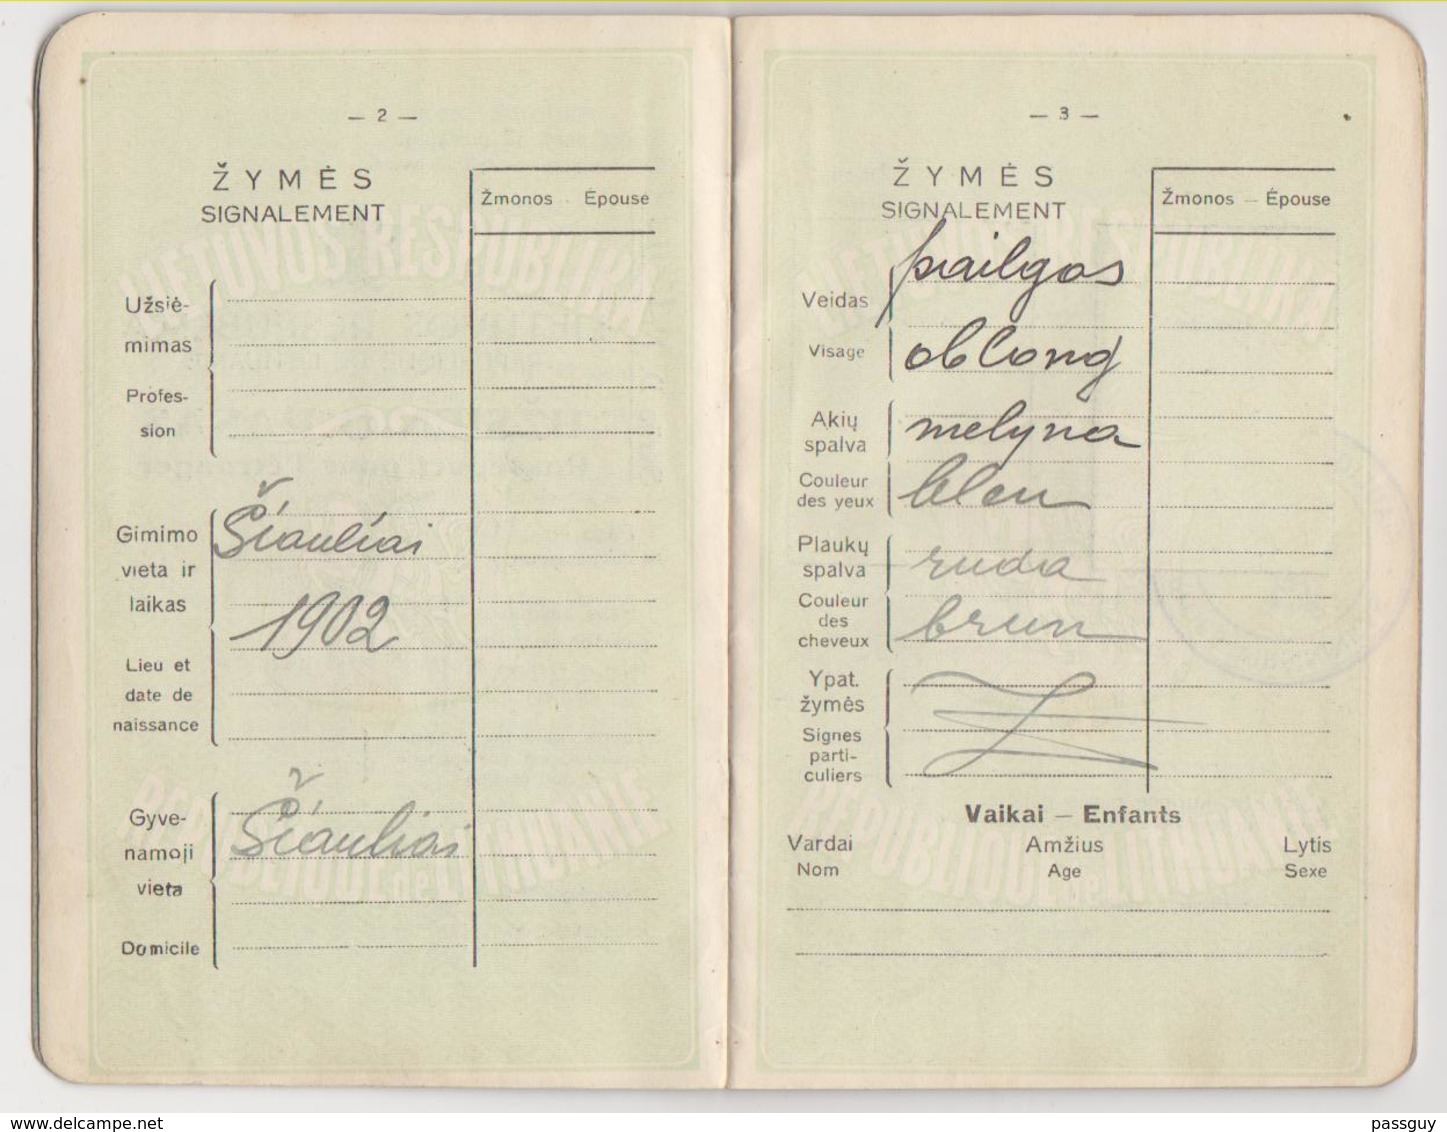 — 2 —
ŽYMĖS
SIGNALEMENT
Žmonos - Épouse
Užsiė-
mimas
Profes-
sion
Gimimo
vieta ir
laikas
Šiauliai
1902
Lieu et
date de
naissance
Gyve-
namoji
vieta
Šiauliai
Domicile
— 3 —
ŽYMĖS
SIGNALEMENT
Žmonos — Épouse
Veidas
pailgas
Visage
oblong
Akių
spalva
mėlyna
Couleur
des yeux
bleu
Plaukų
spalva
ruda
Couleur
des
cheveux
brun
Ypat.
žymės
Signes
parti-
culiers
Vaikai — Enfants
Vardai Amžius Lytis
Nom Age Sexe
LIETUVOS RESPUBLIKA
RÉPUBLIQUE de LITHUANIE
LIETUVOS RESPUBLIKA
RÉPUBLIQUE de LITHUANIE
www.delcampe.net
passguy